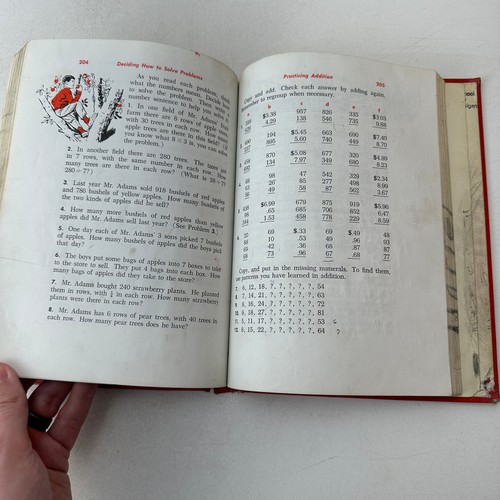 204 Deciding How to Solve Problems
As you read each problem, think
what the numbers mean. Decide how
to solve the problem. Then use a
number sentence to help you solve it.
1. In one field of Mr. Adams' fruit
farm there are 8 rows of apple trees
with 30 trees in each row. How many
apple trees are there in this field?
you know what 8 × 3 is, you can
the problem.)
2. In another field there are 280 trees. The trees are
in 7 rows, with the same number in each row. How
many trees are there in each row? (What is 28 ÷ 7?
280 ÷ 7?)
3. Last year Mr. Adams sold 918 bushels of red apples
and 786 bushels of yellow apples. How many bushels of
the two kinds of apples did he sell?
4. How many more bushels of red apples than yellow
apples did Mr. Adams sell last year? (See Problem 3.)
5. One day each of Mr. Adams' 3 sons picked 7 bushels
of apples. How many bushels of apples did the boys pick
that day?
6. The boys put some bags of apples into 7 boxes to take
to the store to sell. They put 4 bags into each box. How
many bags of apples did they take to the store?
7. Mr. Adams bought 240 strawberry plants. He planted
them in rows, with in each row. How many strawberry
plants were there in each row?
8. Mr. Adams has 6 rows of pear trees, with 40 trees in
each row. How many pear trees does he have?
Practicing Addition 205
Copy and add. Check each answer by adding again.
to regroup when necessary.
a b c d e f
$3.38 957 826 335 $3.03
4.29 138 546 735 9.88
194 $5.45 663 690 $7.40
895 5.60 740 449 8.70
870 $5.08 677 320 $4.89
134 7.97 349 690 8.23
98 47 542 329 $2.34
26 85 277 498 8.99
49 58 87 562 3.67
$6.99 679 875 919 $5.96
.65 685 706 852 6.47
1.53 458 778 229 8.59
69 $.33 69 $.49 48
10 .53 49 .96 93
42 .36 68 .87 87
73 .96 67 .68 77
Copy, and put in the missing numerals. To find them,
use patterns you have learned in addition.
7. 6, 12, 18, ?, ?, ?, ?, ?, 54
8. 7, 14, 21, ?, ?, ?, ?, ?, 63
9. 8, 16, 24, ?, ?, ?, ?, ?, 72
10. 9, 18, 27, ?, ?, ?, ?, ?, 81
11. 5, 11, 17, ?, ?, ?, ?, ?, 53
12. 8, 15, 22, ?, ?, ?, ?, ?, 64